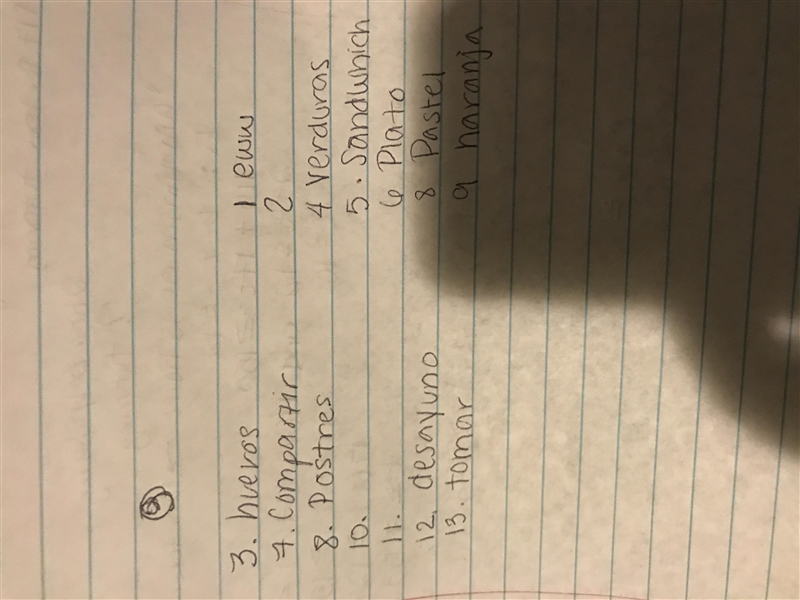 3. hueros
7. Compartir
8. Postres
10.
11.
12. desayuno
13. tomar
1 eww
2
4 verduras
5. Sandwhich
6 Plato
8 Pastel
9 naranja